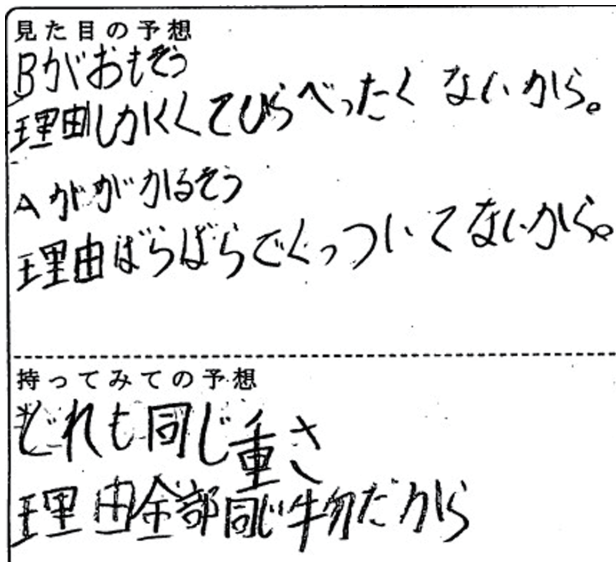 見た目の予想
Bがおもそう
理由しかくくてひらべったくないから。
Aががかるそう
理由ばらばらでくっついてないから。
持ってみての予想
どれも同じ重さ
理由全部同じ物だから